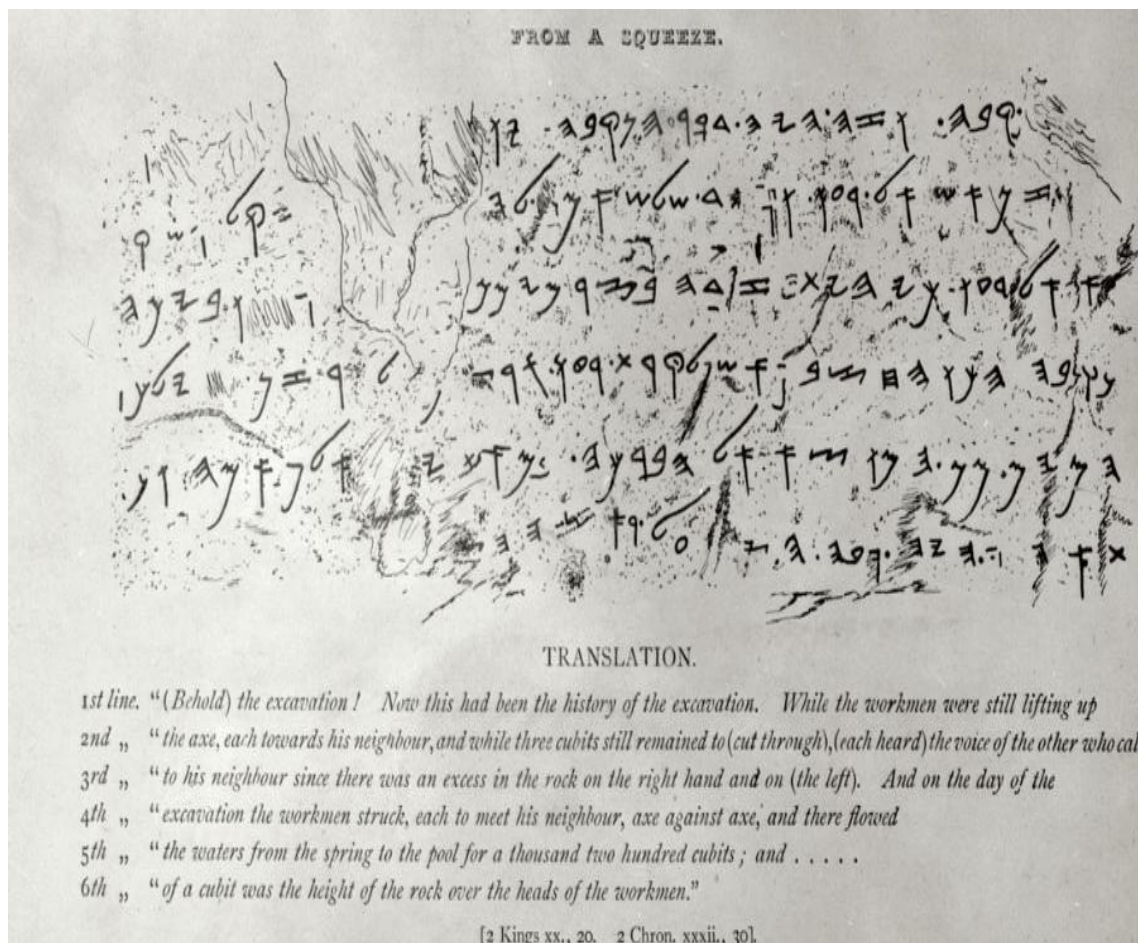 FROM A SQUEEZE.
𐤄𐤉𐤄 𐤃𐤁𐤓 𐤄𐤍𐤒𐤁𐤄
𐤀𐤔 𐤀𐤋 𐤓𐤏𐤅 𐤔𐤋𐤔 𐤀𐤌𐤕 𐤒𐤋
𐤀𐤋 𐤓𐤏𐤅 𐤊𐤉 𐤄𐤉𐤕 𐤆𐤃𐤄 𐤁𐤑𐤓 𐤌𐤉𐤌𐤍
𐤍𐤒𐤁𐤄 𐤄𐤊𐤅 𐤄𐤇𐤑𐤁𐤌 𐤀𐤔 𐤋𐤒𐤓𐤕 𐤓𐤏𐤅 𐤂𐤓𐤆𐤍
𐤄𐤌𐤉𐤌 𐤌𐤍 𐤄𐤌𐤅𐤑𐤀 𐤀𐤋 𐤄𐤁𐤓𐤊𐤄 𐤁𐤌𐤀𐤕𐤉𐤌 𐤀𐤋𐤐 𐤀𐤌𐤄
𐤄𐤉𐤄 𐤂𐤁𐤄 𐤏𐤋
TRANSLATION.
1st line. "(Behold) the excavation! Now this had been the history of the excavation. While the workmen were still lifting up
2nd „ "the axe, each towards his neighbour, and while three cubits still remained to (cut through), (each heard) the voice of the other who cal
3rd „ "to his neighbour since there was an excess in the rock on the right hand and on (the left). And on the day of the
4th „ "excavation the workmen struck, each to meet his neighbour, axe against axe, and there flowed
5th „ "the waters from the spring to the pool for a thousand two hundred cubits; and . . . . .
6th „ "of a cubit was the height of the rock over the heads of the workmen."
[2 Kings xx., 20. 2 Chron. xxxii., 30].